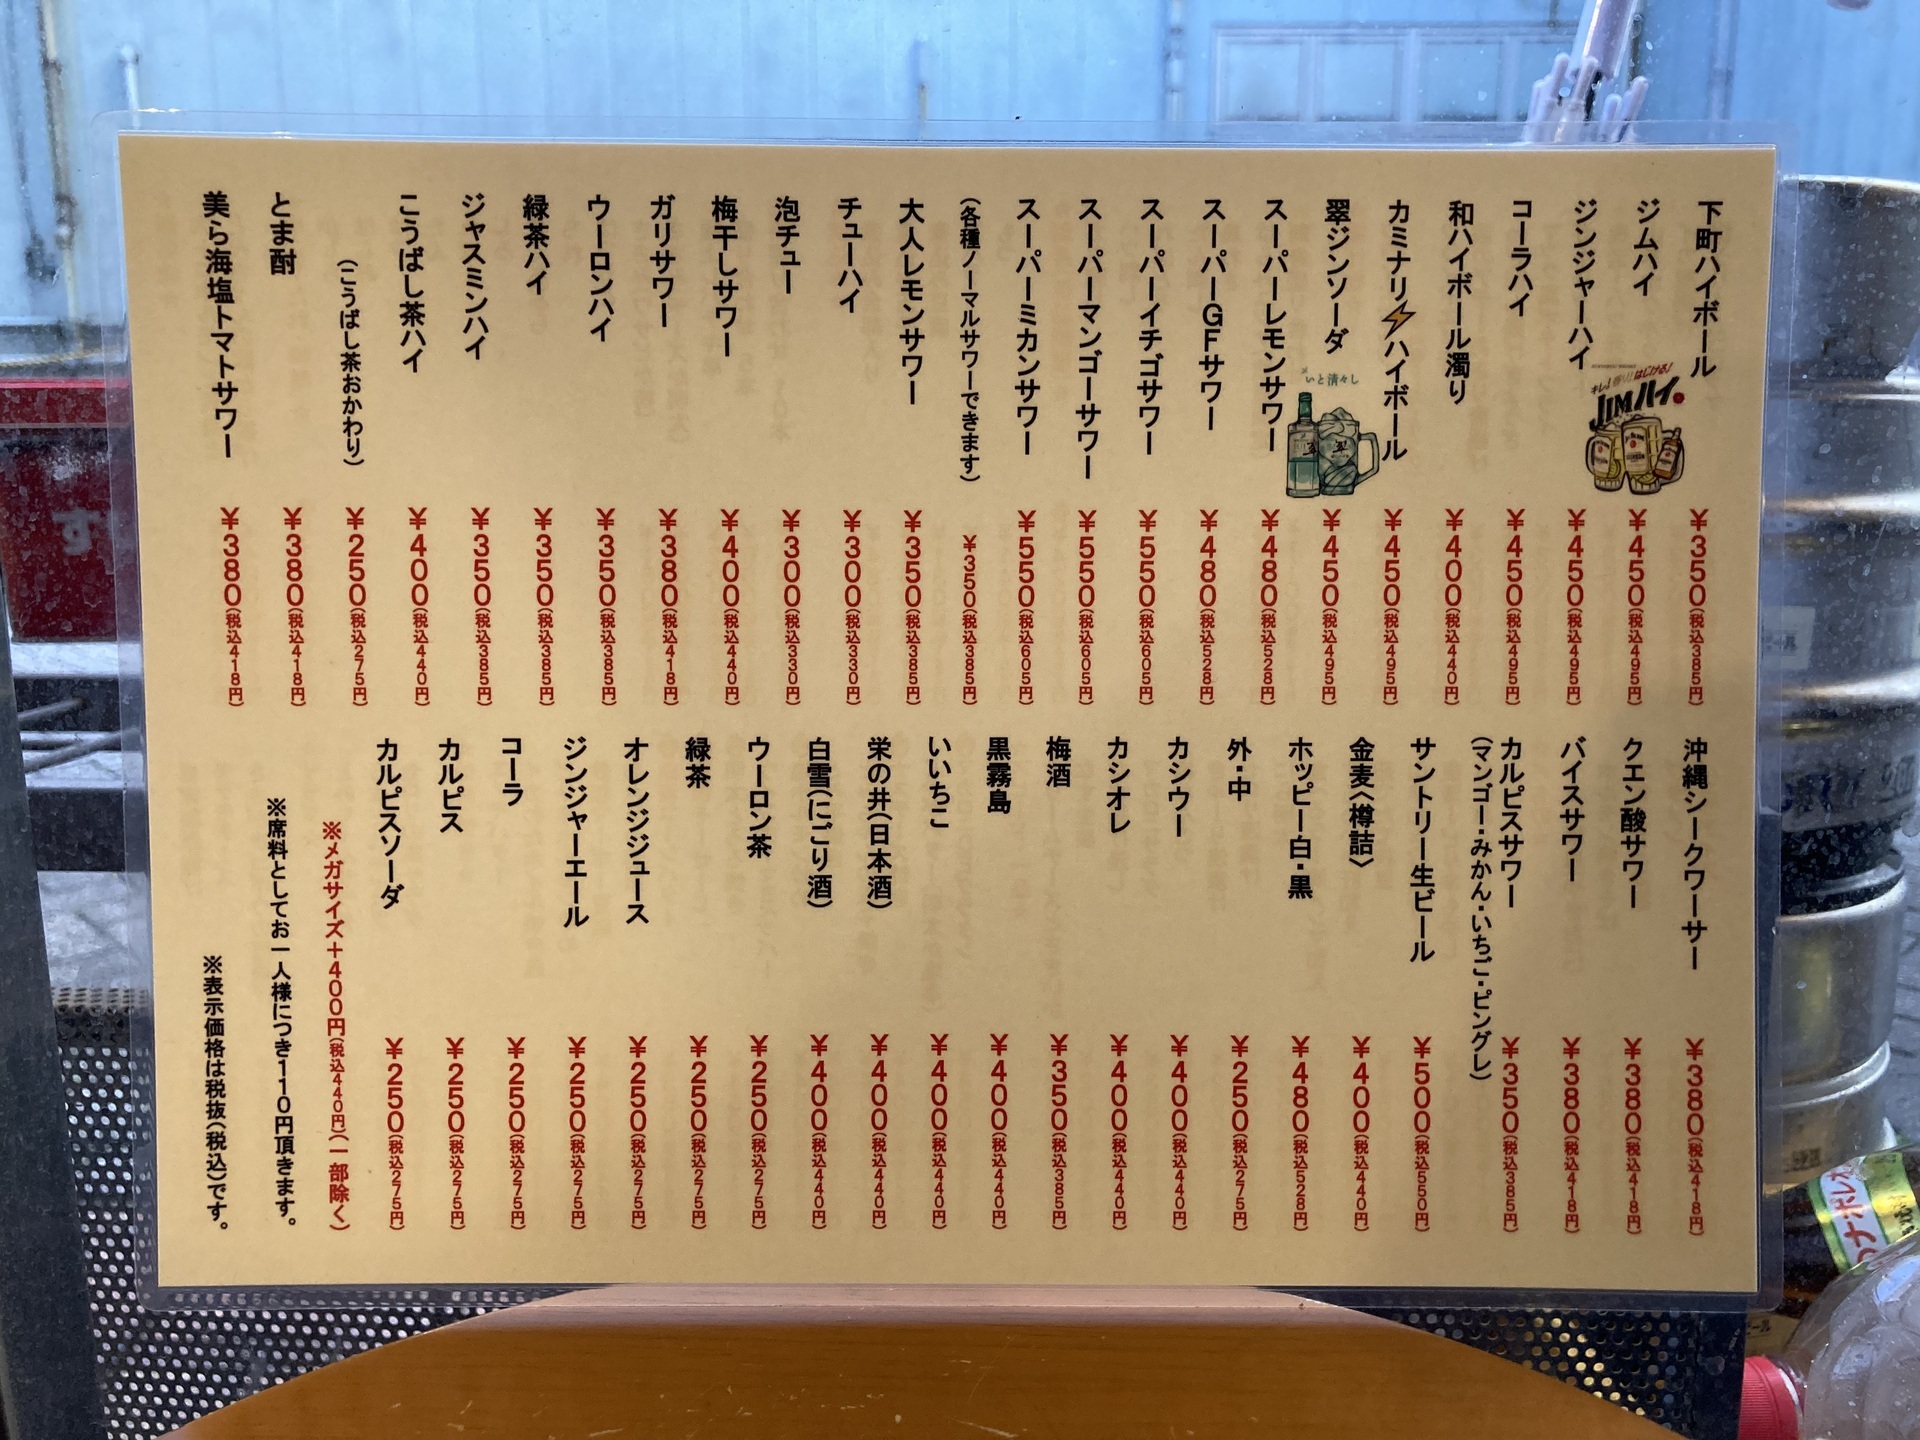 下町ハイボール ¥350(税込385円)
ジムハイ ¥450(税込495円)
ジンジャーハイ ¥450(税込495円)
コーラハイ ¥450(税込495円)
和ハイボール濁り ¥400(税込440円)
カミナリ⚡ハイボール ¥450(税込495円)
翠ジンソーダ ¥450(税込495円)
スーパーレモンサワー ¥480(税込528円)
スーパーGFサワー ¥480(税込528円)
スーパーイチゴサワー ¥550(税込605円)
スーパーマンゴーサワー ¥550(税込605円)
スーパーミカンサワー ¥550(税込605円)
(各種ノーマルサワーできます) ¥350(税込385円)
大人レモンサワー ¥350(税込385円)
チューハイ ¥300(税込330円)
泡チュー ¥300(税込330円)
梅干しサワー ¥400(税込440円)
ガリサワー ¥380(税込418円)
ウーロンハイ ¥350(税込385円)
緑茶ハイ ¥350(税込385円)
ジャスミンハイ ¥350(税込385円)
こうばし茶ハイ ¥400(税込440円)
(こうばし茶おかわり) ¥250(税込275円)
とま酎 ¥380(税込418円)
美ら海塩トマトサワー ¥380(税込418円)
キレ!香り!はじける!
JIMハイ。
いと清々し
翠
沖縄シークワーサー ¥380(税込418円)
クエン酸サワー ¥380(税込418円)
バイスサワー ¥380(税込418円)
カルピスサワー ¥350(税込385円)
(マンゴー・みかん・いちご・ピングレ)
サントリー生ビール ¥500(税込550円)
金麦〈樽詰〉 ¥400(税込440円)
ホッピー白・黒 ¥480(税込528円)
外・中 ¥250(税込275円)
カシウー ¥400(税込440円)
カシオレ ¥400(税込440円)
梅酒 ¥350(税込385円)
黒霧島 ¥400(税込440円)
いいちこ ¥400(税込440円)
栄の井(日本酒) ¥400(税込440円)
白雪(にごり酒) ¥400(税込440円)
ウーロン茶 ¥250(税込275円)
緑茶 ¥250(税込275円)
オレンジジュース ¥250(税込275円)
ジンジャーエール ¥250(税込275円)
コーラ ¥250(税込275円)
カルピス ¥250(税込275円)
カルピスソーダ ¥250(税込275円)
※メガサイズ+400円(税込440円)(一部除く)
※席料としてお一人様につき110円頂きます。
※表示価格は税抜(税込)です。
す